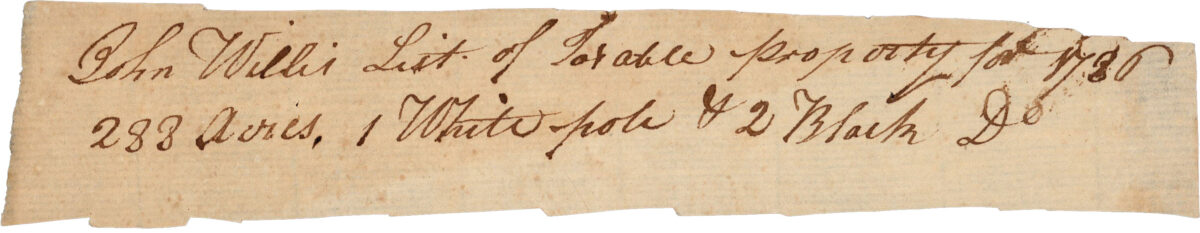 John Willis List of Taxable property for 1786
288 Acres. 1 White pole & 2 Black Do